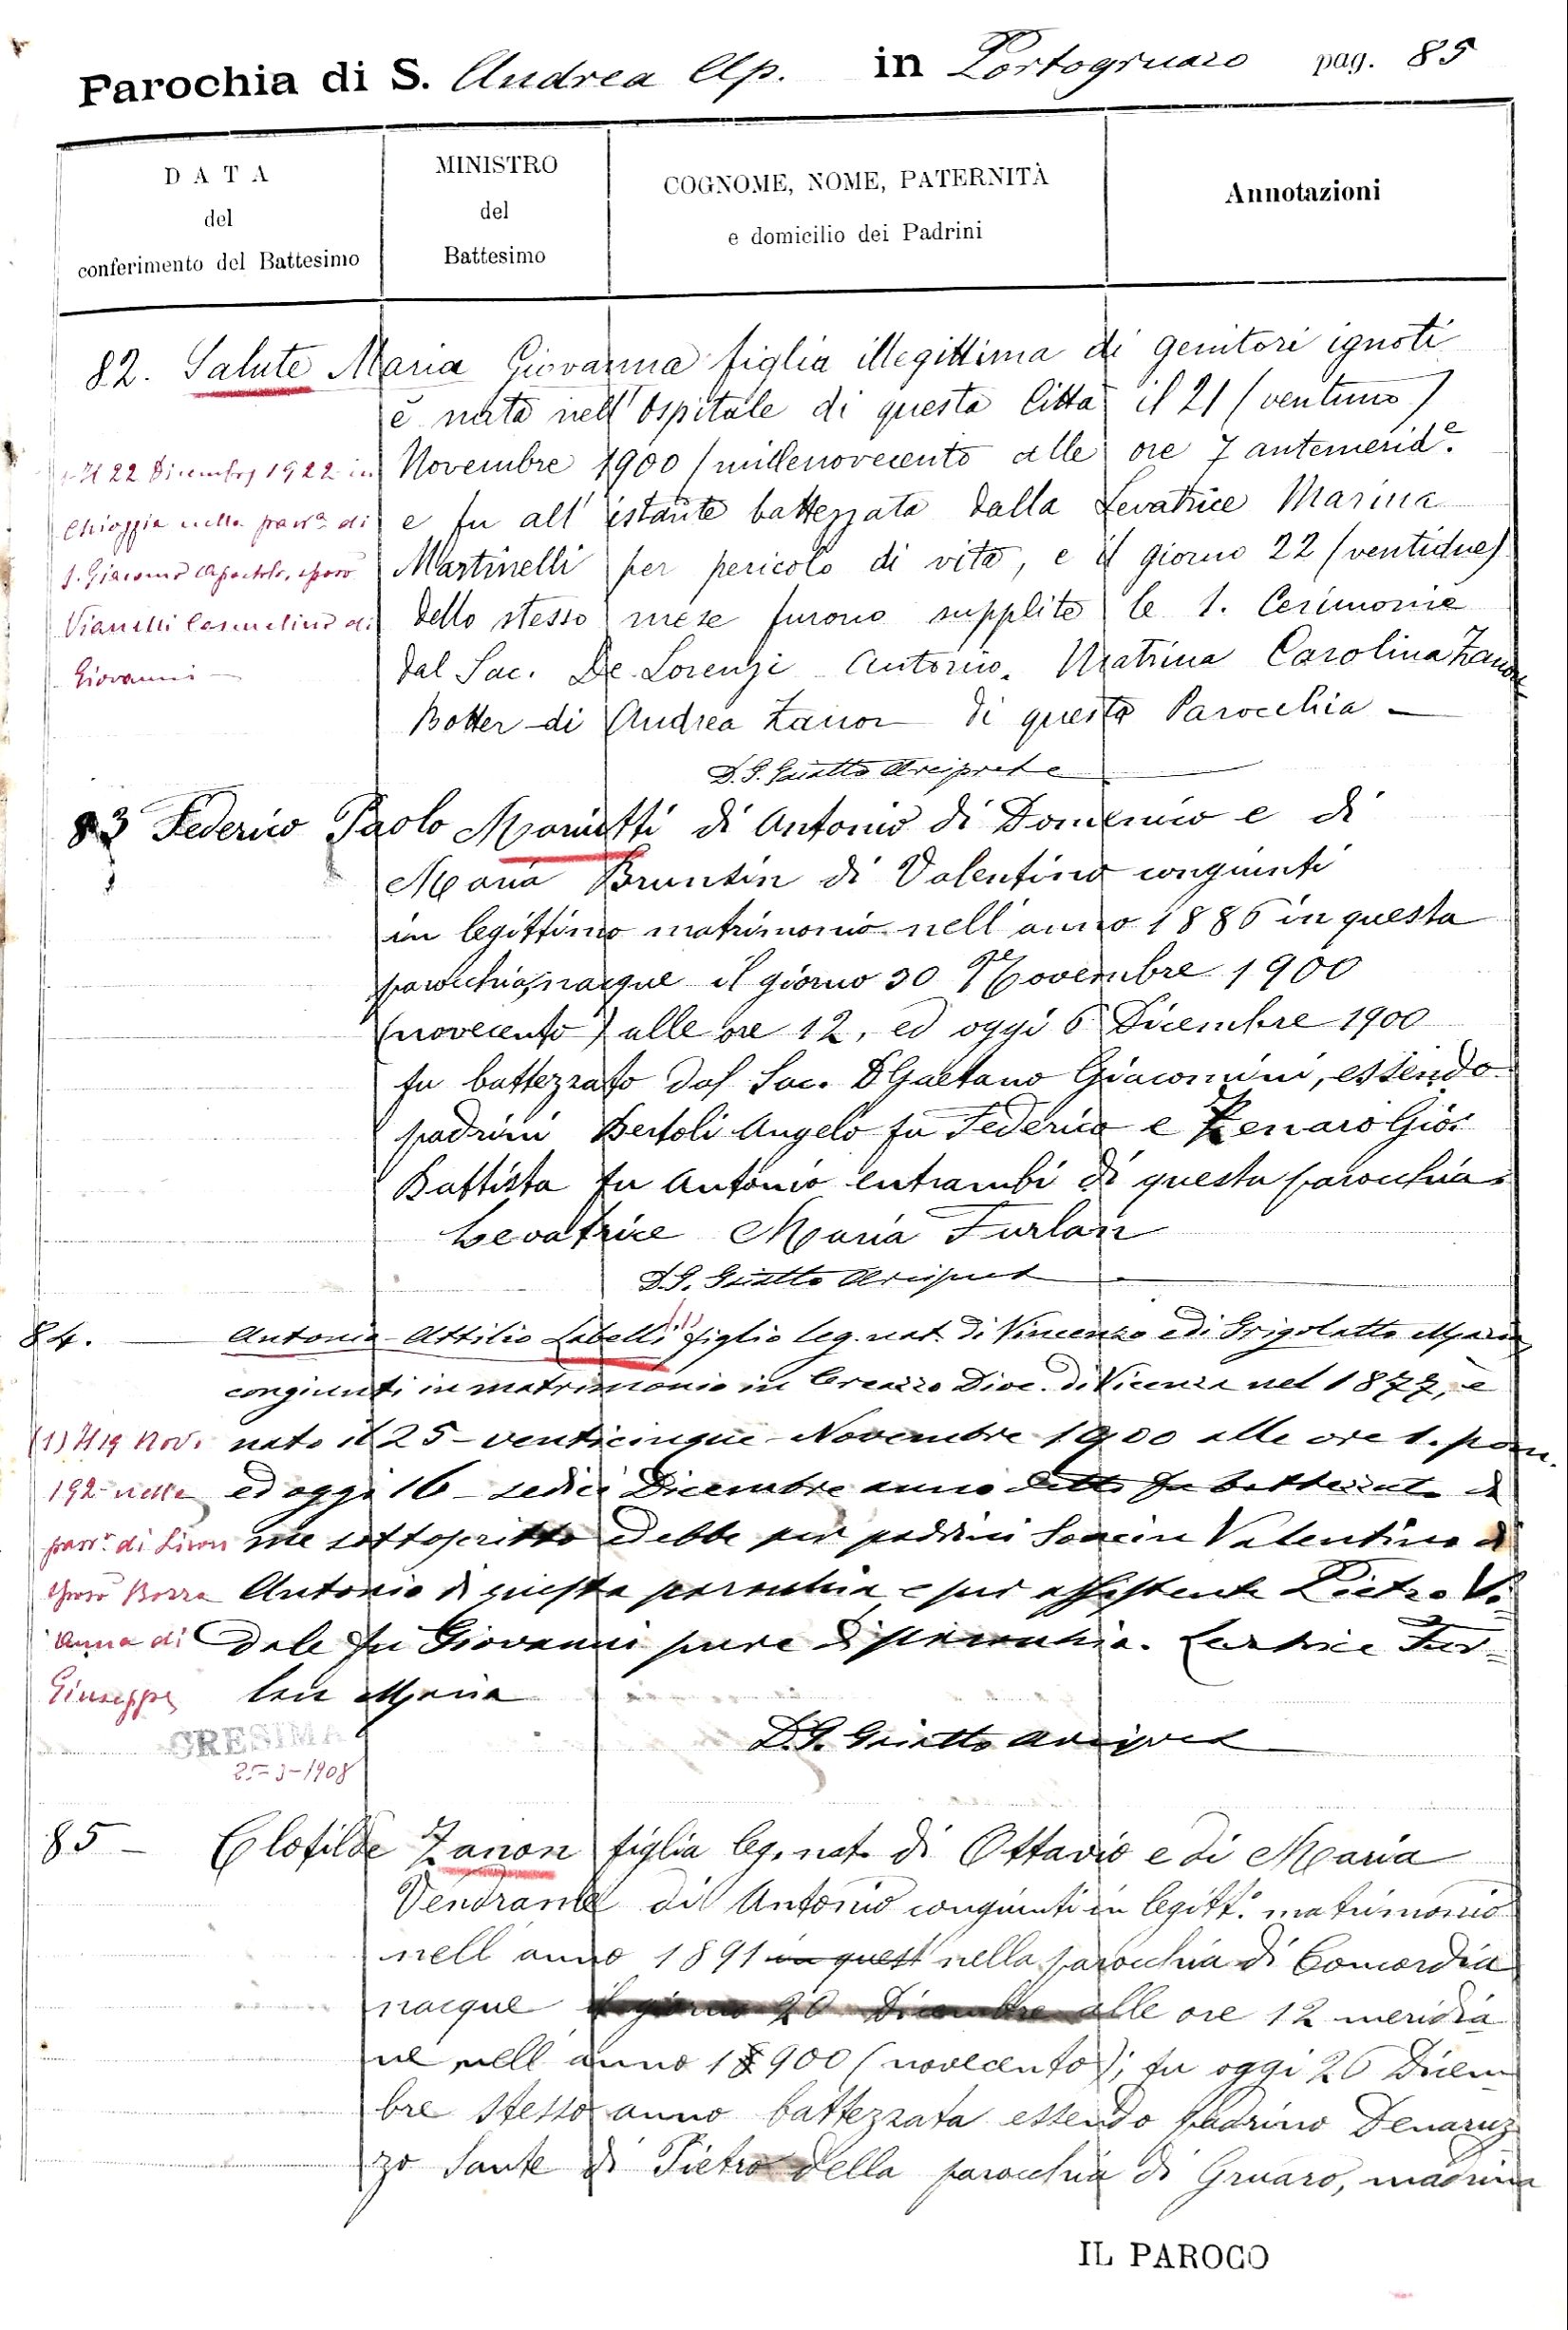 Parochia di S. Andrea Ap. in Portogruaro pag. 85
DATA
del
conferimento del Battesimo
MINISTRO
del
Battesimo
COGNOME, NOME, PATERNITÀ
e domicilio dei Padrini
Annotazioni
82. Salute Maria Giovanna figlia illegittima di genitori ignoti
è nata nell'Ospitale di questa Città il 21 (ventuno)
Novembre 1900 (millenovecento alle ore 7 antemerid.e
e fu all'istante battezzata dalla Levatrice Marina
Martinelli per pericolo di vita, e il giorno 22 (ventidue)
dello stesso mese furono supplite le S. Cerimonie
dal Sac. De Lorenzi Antonio. Matrina Carolina Zanon
Botter di Andrea Zanon di questa Parocchia –
D. G. Giatto Arciprete
Il 22 Dicembre 1922 in
Chioggia nella parr.a di
S. Giacomo Apostolo, sposò
Vianelli Carmelino di
Giovanni –
83 Federico Paolo Moriutti di Antonio di Domenico e di
Maria Bruntin di Valentino congiunti
in legittimo matrimonio nell'anno 1886 in questa
parocchia, nacque il giorno 30 Novembre 1900
(novecento) alle ore 12, ed oggi 6 Dicembre 1900
fu battezzato dal Sac. D Gaetano Giacomini, essendo
padrini Bertoli Angelo fu Federico e Zenaro Gio:
Battista fu Antonio entrambi di questa parocchia.
Levatrice Maria Furlan
D. G. Giatto Arcipret
84. Antonio Attilio Labelli (1) figlio leg. nat. di Vincenzo e di Grigoletto Maria
congiunti in matrimonio in Creazzo Dioc. di Vicenza nel 1877, è
nato il 25 – venticinque Novembre 1900 alle ore 1. pom.
ed oggi 16 – sedici Dicembre anno detto fu battezzato da
me sottoscritto ed ebbe per padrini Valentino di
Antonio di questa parocchia e per assistente Pietro Vi=
dale fu Giovanni pure di parocchia. Levatrice Fur=
lan Maria
D. G. Giatto Arcipret
(1) Il 19 Nov.
192 nella
parr.a di
sposò Borra
Anna di
Giuseppe
CRESIMA
25-3-1908
85 – Clotilde Zanon figlia leg. nat. di Ottavio e di Maria
Vendrame di Antonio congiunti in legitt.o matrimonio
nell'anno 1891 in quest nella parocchia di Concordia
nacque il giorno 20 Dicembre alle ore 12 meridia
ne nell'anno 1900 (novecento); fu oggi 26 Dicem
bre stesso anno battezzata essendo padrino Denaruz
zo Sante di Pietro della parocchia di Gruaro, madrina
IL PAROCO